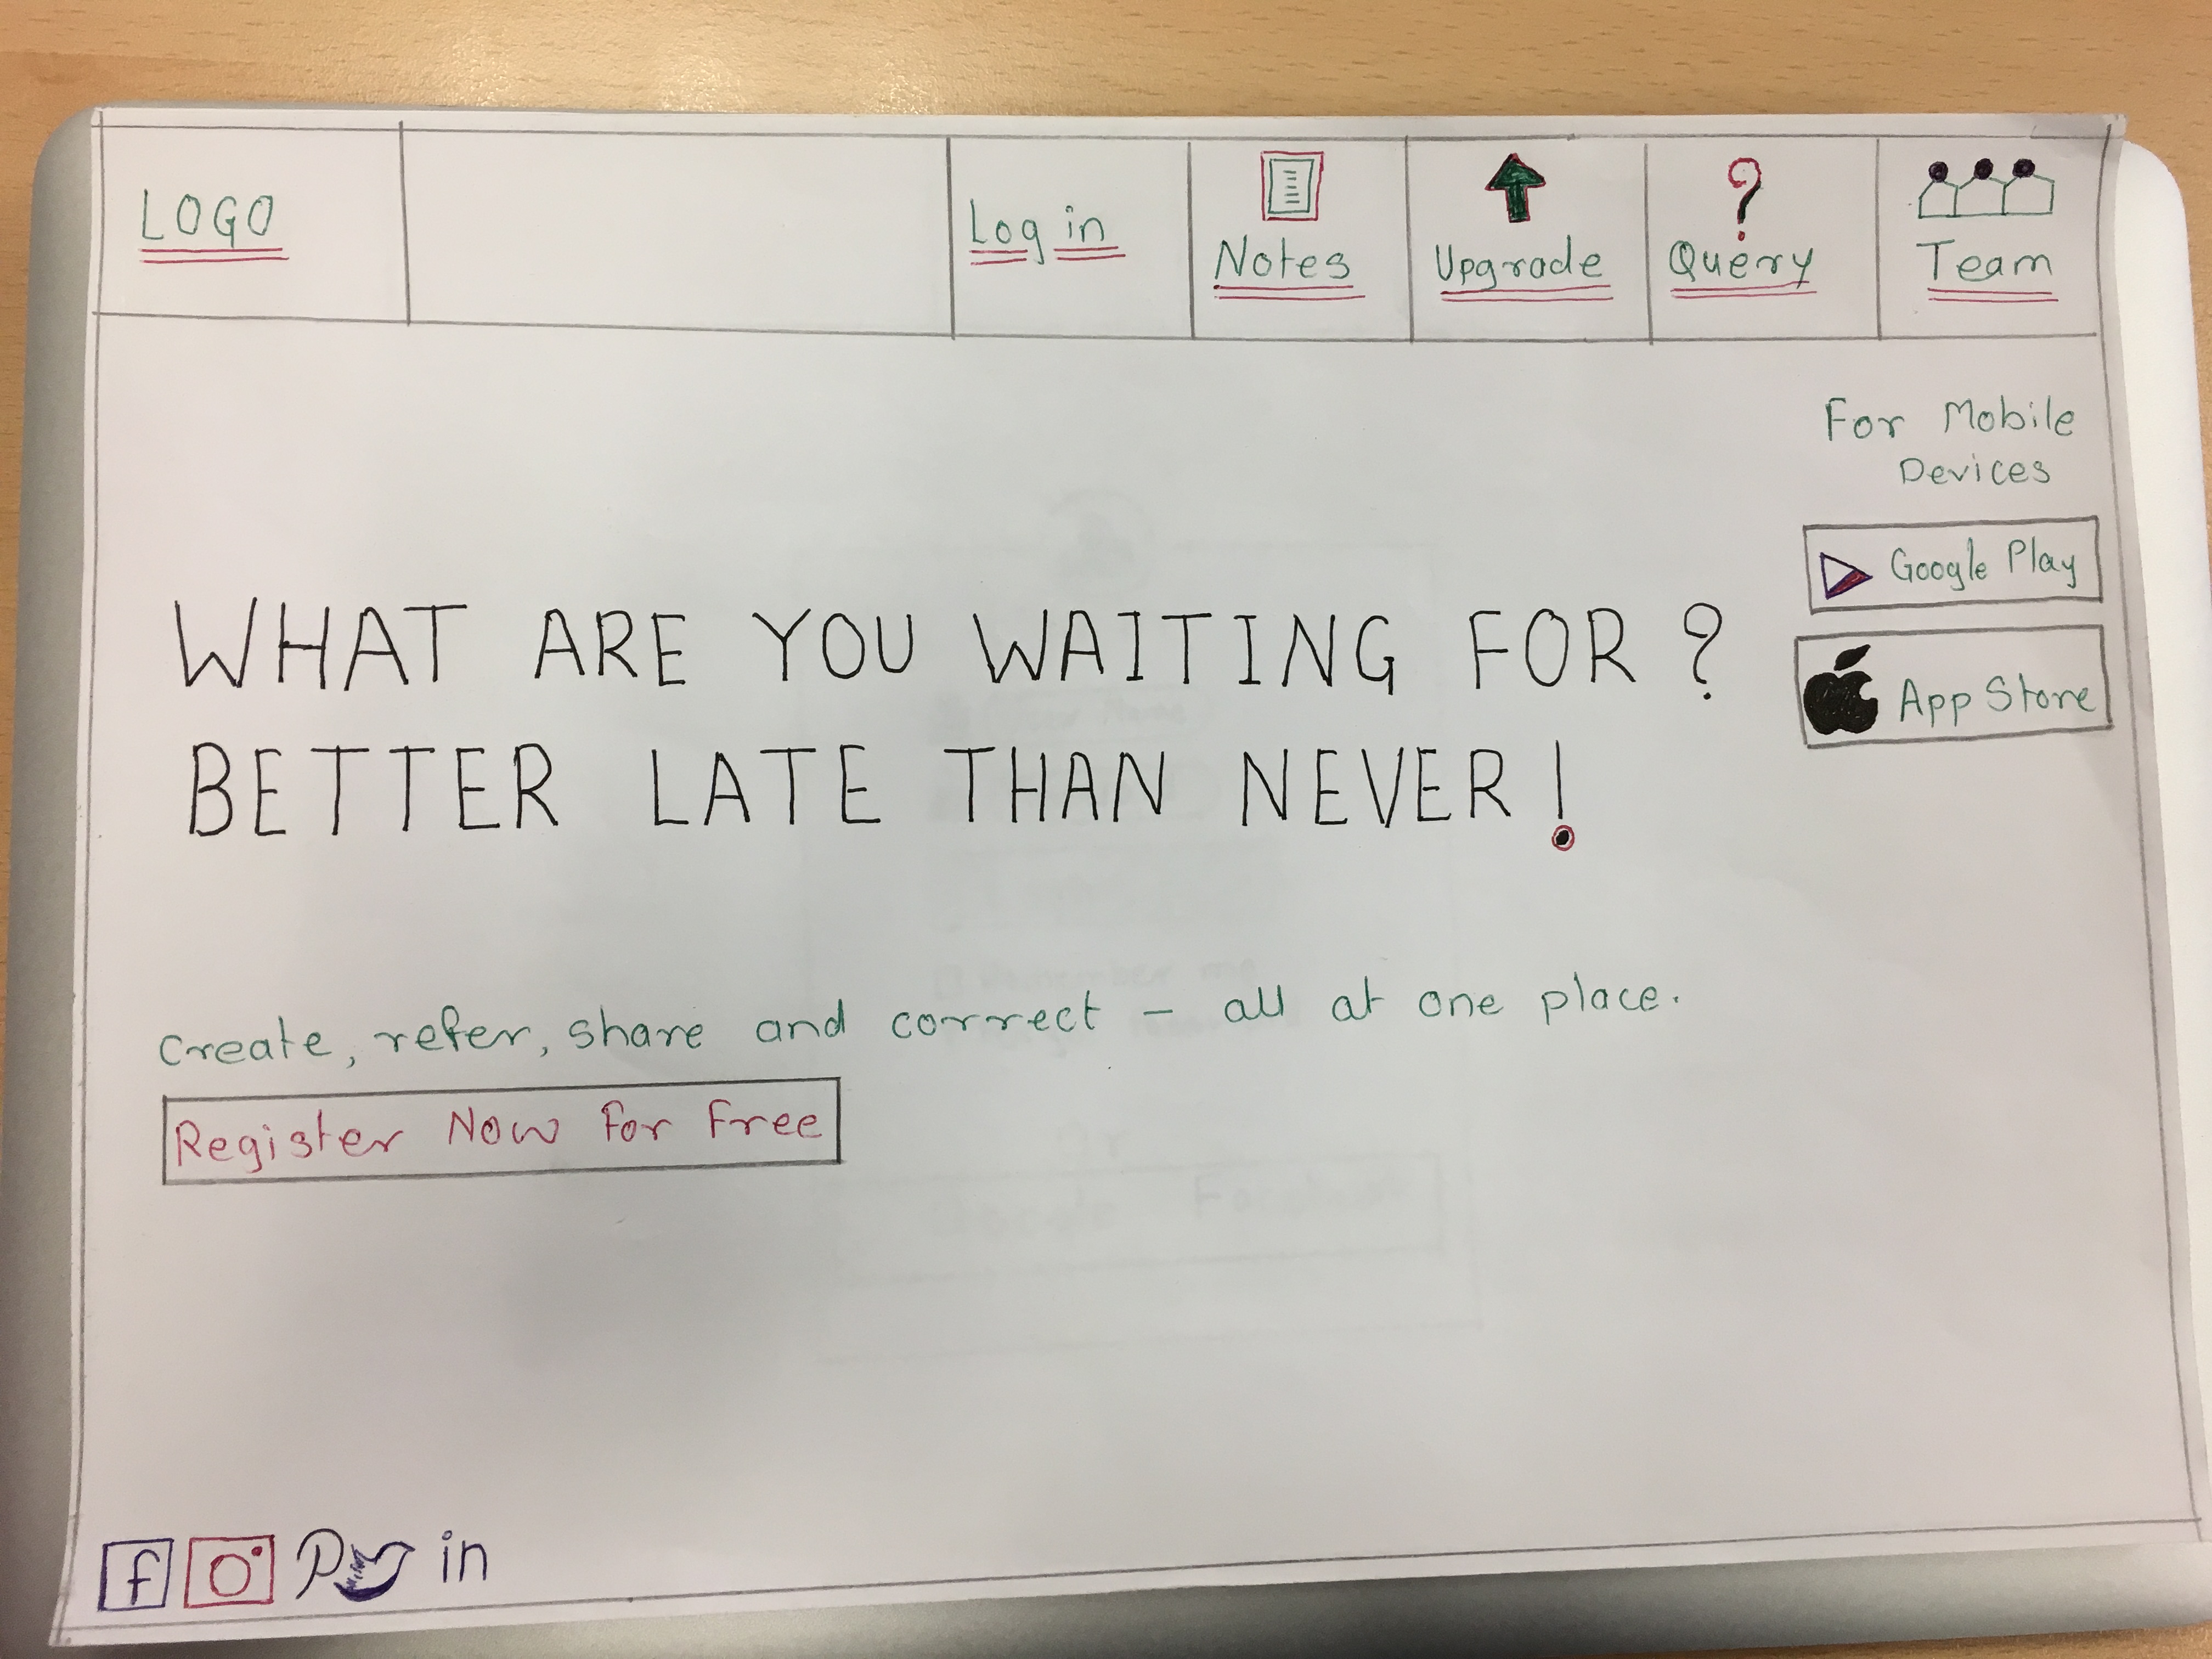 LOGO
Log in
Notes
Upgrade
? Query
Team
For Mobile
Devices
Google Play
App Store
WHAT ARE YOU WAITING FOR ?
BETTER LATE THAN NEVER!
Create, refer, share and correct - all at one place.
Register Now for Free
f P in